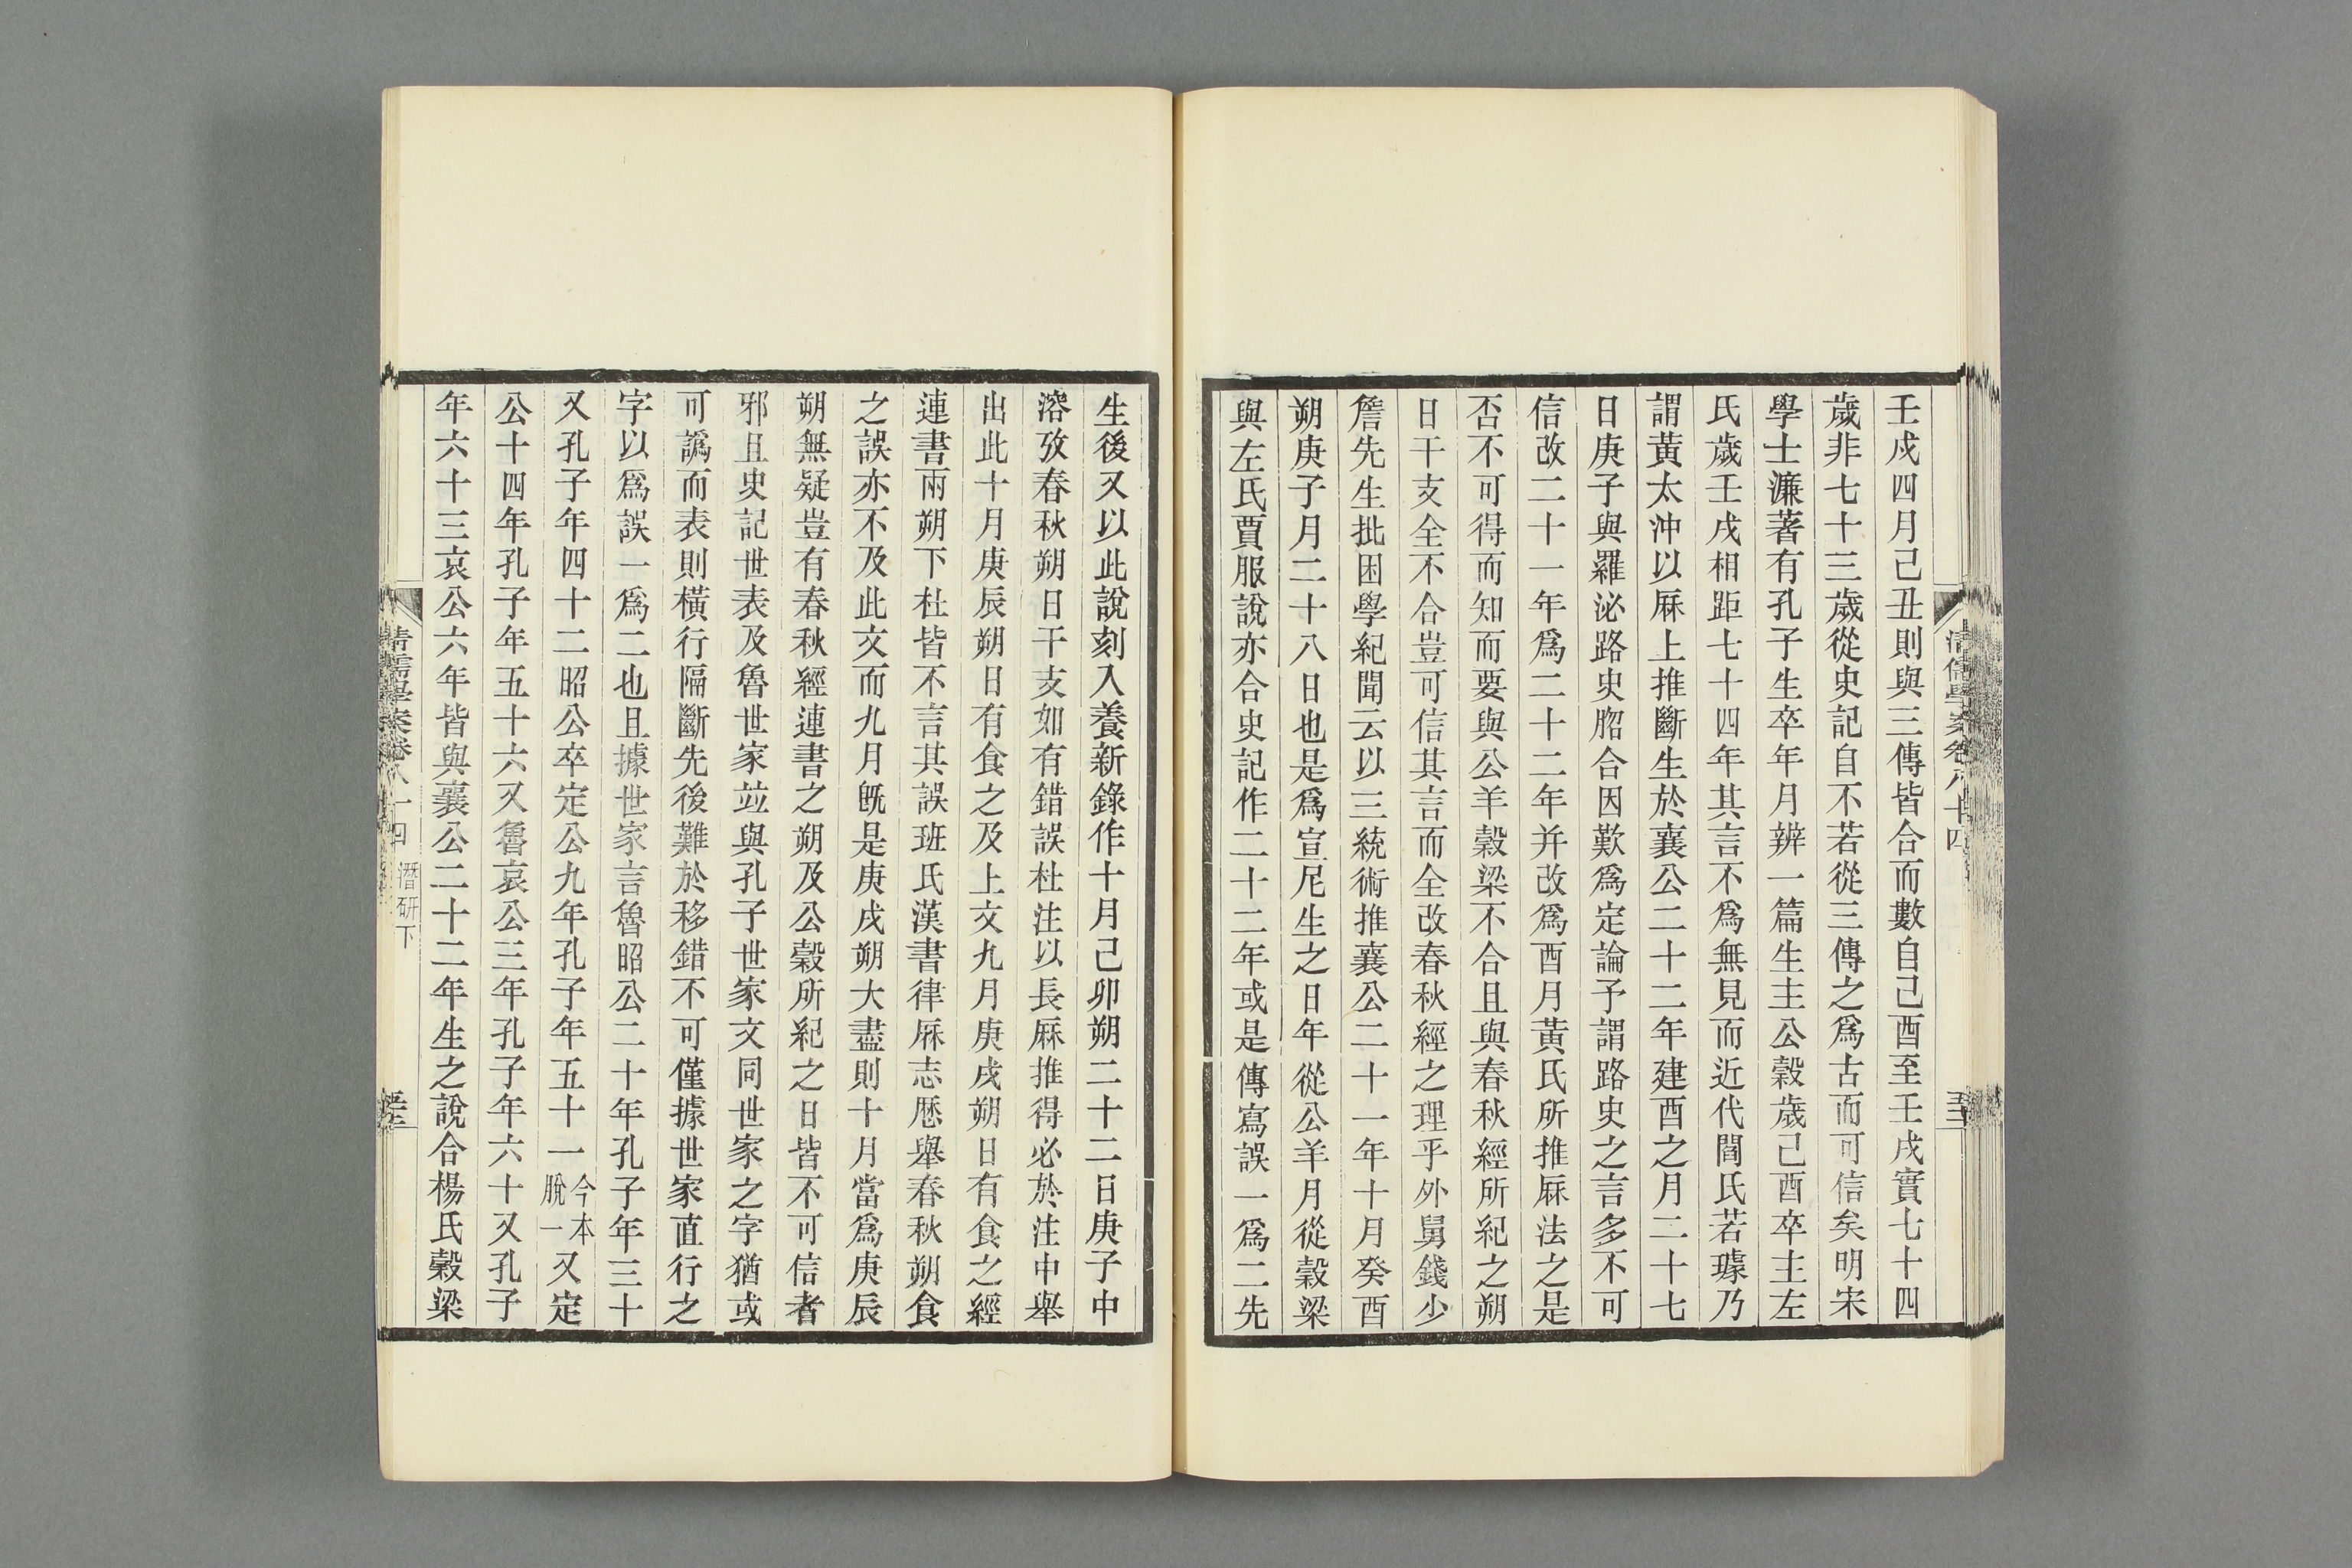 壬戌四月己丑則與三傳皆合而數自己酉至壬戌實七十四
歲非七十三歲從史記自不若從三傳之爲古而可信矣明宋
學士濂著有孔子生卒年月辨一篇生主公穀歲己酉卒主左
氏歲壬戌相距七十四年其言不爲無見而近代閻氏若璩乃
謂黃太沖以厤上推斷生於襄公二十二年建酉之月二十七
日庚子與羅泌路史脗合因歎爲定論予謂路史之言多不可
信改二十一年爲二十二年并改爲酉月黃氏所推厤法之是
否不可得而知而要與公羊穀梁不合且與春秋經所紀之朔
日干支全不合豈可信其言而全改春秋經之理乎外舅錢少
詹先生批困學紀聞云以三統術推襄公二十一年十月癸酉
朔庚子月二十八日也是爲宣尼生之日年從公羊月從穀梁
與左氏賈服說亦合史記作二十二年或是傳寫誤一爲二先
生後又以此說刻入養新錄作十月己卯朔二十二日庚子中
溶攷春秋朔日干支如有錯誤杜注以長厤推得必於注中舉
出此十月庚辰朔日有食之及上文九月庚戌朔日有食之經
連書兩朔下杜皆不言其誤班氏漢書律厤志厯舉春秋朔食
之誤亦不及此文而九月旣是庚戌朔大盡則十月當爲庚辰
朔無疑豈有春秋經連書之朔及公穀所紀之日皆不可信者
邪且史記世表及魯世家竝與孔子世家文同世家之字猶或
可譌而表則橫行隔斷先後難於移錯不可僅據世家直行之
字以爲誤一爲二也且據世家言魯昭公二十年孔子年三十
又孔子年四十二昭公卒定公九年孔子年五十一今本脫一又定
公十四年孔子年五十六又魯哀公三年孔子年六十又孔子
年六十三哀公六年皆與襄公二十二年生之說合楊氏穀梁
清儒學案卷八十四
潛研下